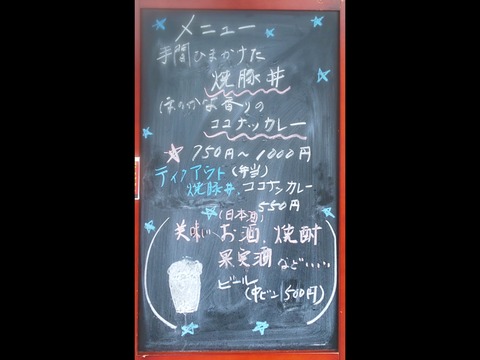 メニュー
手間ひまかけた
焼豚丼
ほのかな香りの
ココナッツカレー
750円〜1000円
テイクアウト(弁当)
焼豚丼.ココナツカレー
550円
(日本酒)
美味しいお酒.焼酎
果実酒などい、、、
ビール
(中ビン500円)